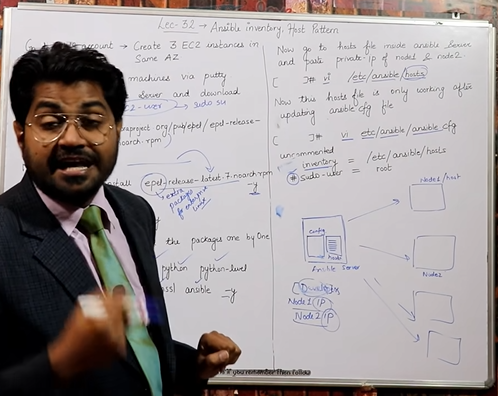 Lec-32 → Ansible inventory, Host Pattern
account → Create 3 EC2 instances in
Same AZ
machines via putty
server and download
user → sudo su
project.org/pub/epel/epel-release-
noarch.rpm
install epel-release-latest-7.noarch.rpm
-y
extra
package
for enterprise
linux
the packages one by One
python python-level
ssl ansible -y
Now go to hosts file inside ansible Server
and paste private-ip of node1 & node2.
[ ]# vi /etc/ansible/hosts
Now this hosts file is only working after
updating ansible.cfg file
[ ]# vi etc/ansible/ansible.cfg
uncommented
inventory = /etc/ansible/hosts
# sudo-user = root
config
hosts
Ansible Server
Node1/host
Node2
Node1 IP
Node2 IP
if you remember then follow